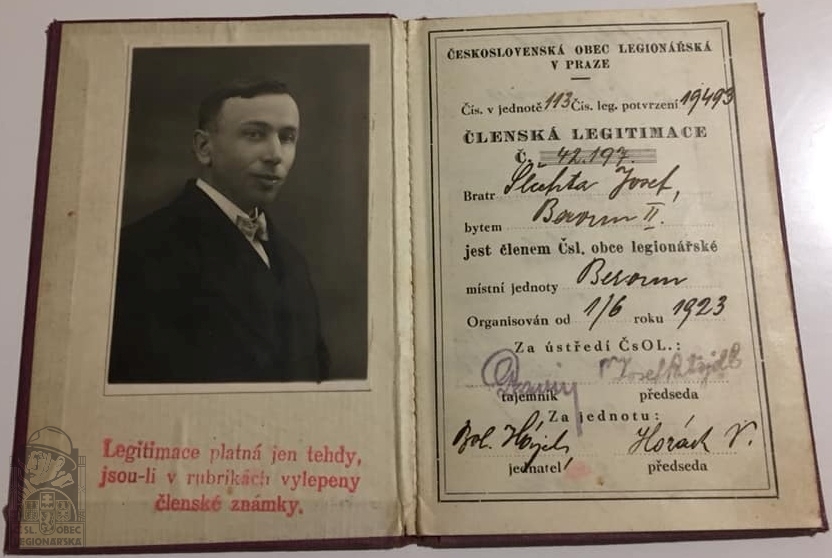 Legitimace platná jen tehdy,
jsou-li v rubrikách vylepeny
členské známky.
ČSL. OBEC
LEGIONÁŘSKÁ
ČESKOSLOVENSKÁ OBEC LEGIONÁŘSKÁ
V PRAZE
Čís. v jednotě 113 Čís. leg. potvrzení 19493
ČLENSKÁ LEGITIMACE
Č. 42.197.
Bratr Josef,
bytem Beroun II.
jest členem Čsl. obce legionářské
místní jednoty Beroun
Organisován od 1/6 roku 1923
Za ústředí ČsOL.:
Josef
tajemník předseda
Za jednotu:
Horák V.
jednatel předseda